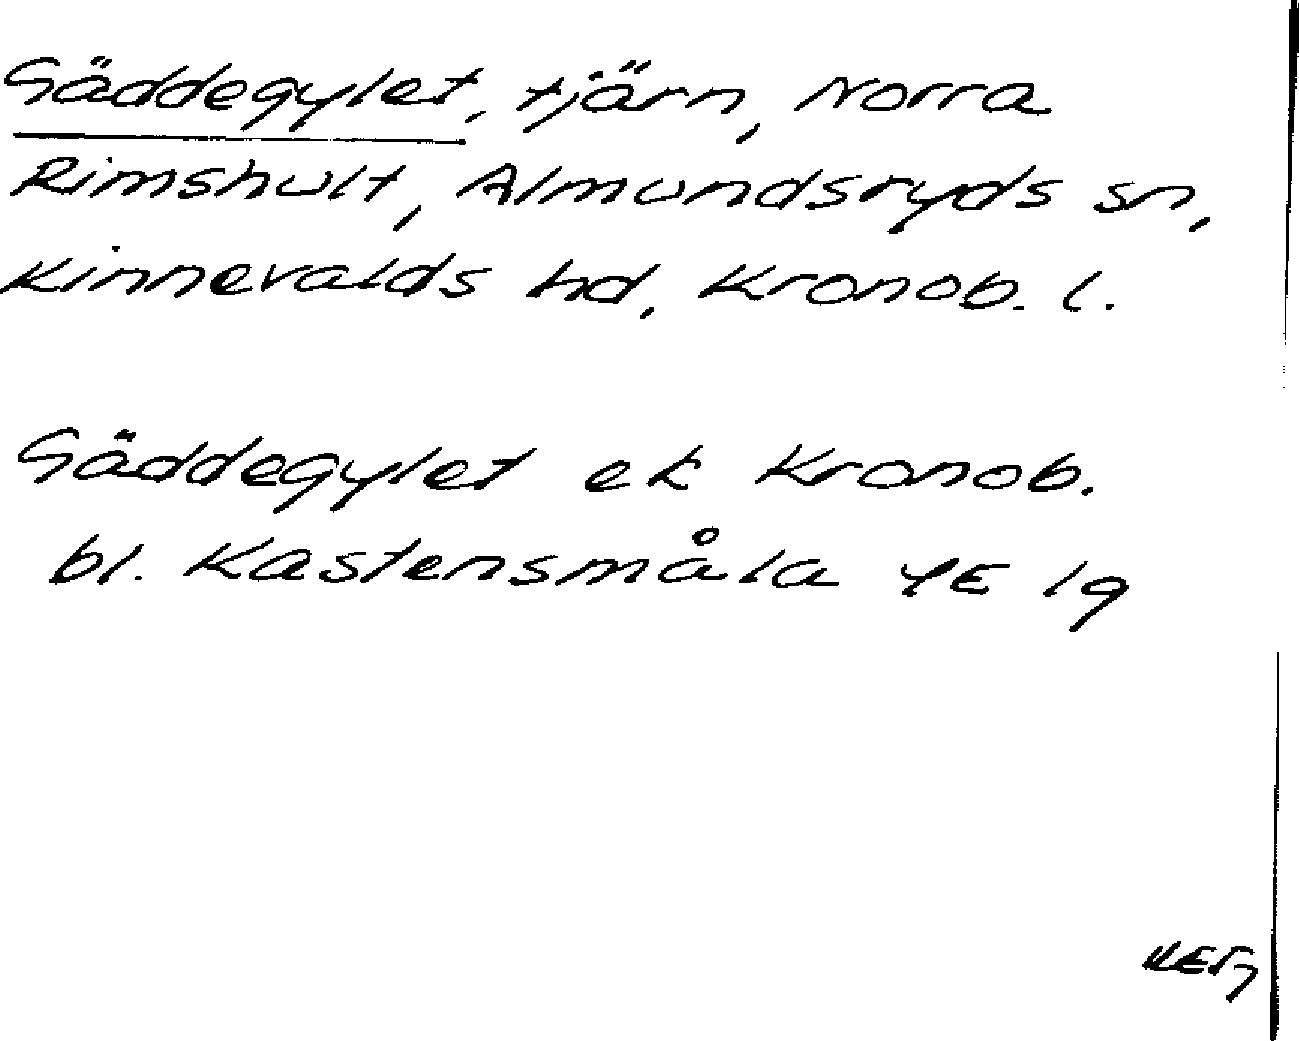 Gäddegylet, tjärn, Norra
Rimshult, Almundsryds sn,
Kinnevalds hd, Kronob. l.
Gäddegylet ek Kronob.
bl. Kastensmåla 4E 19